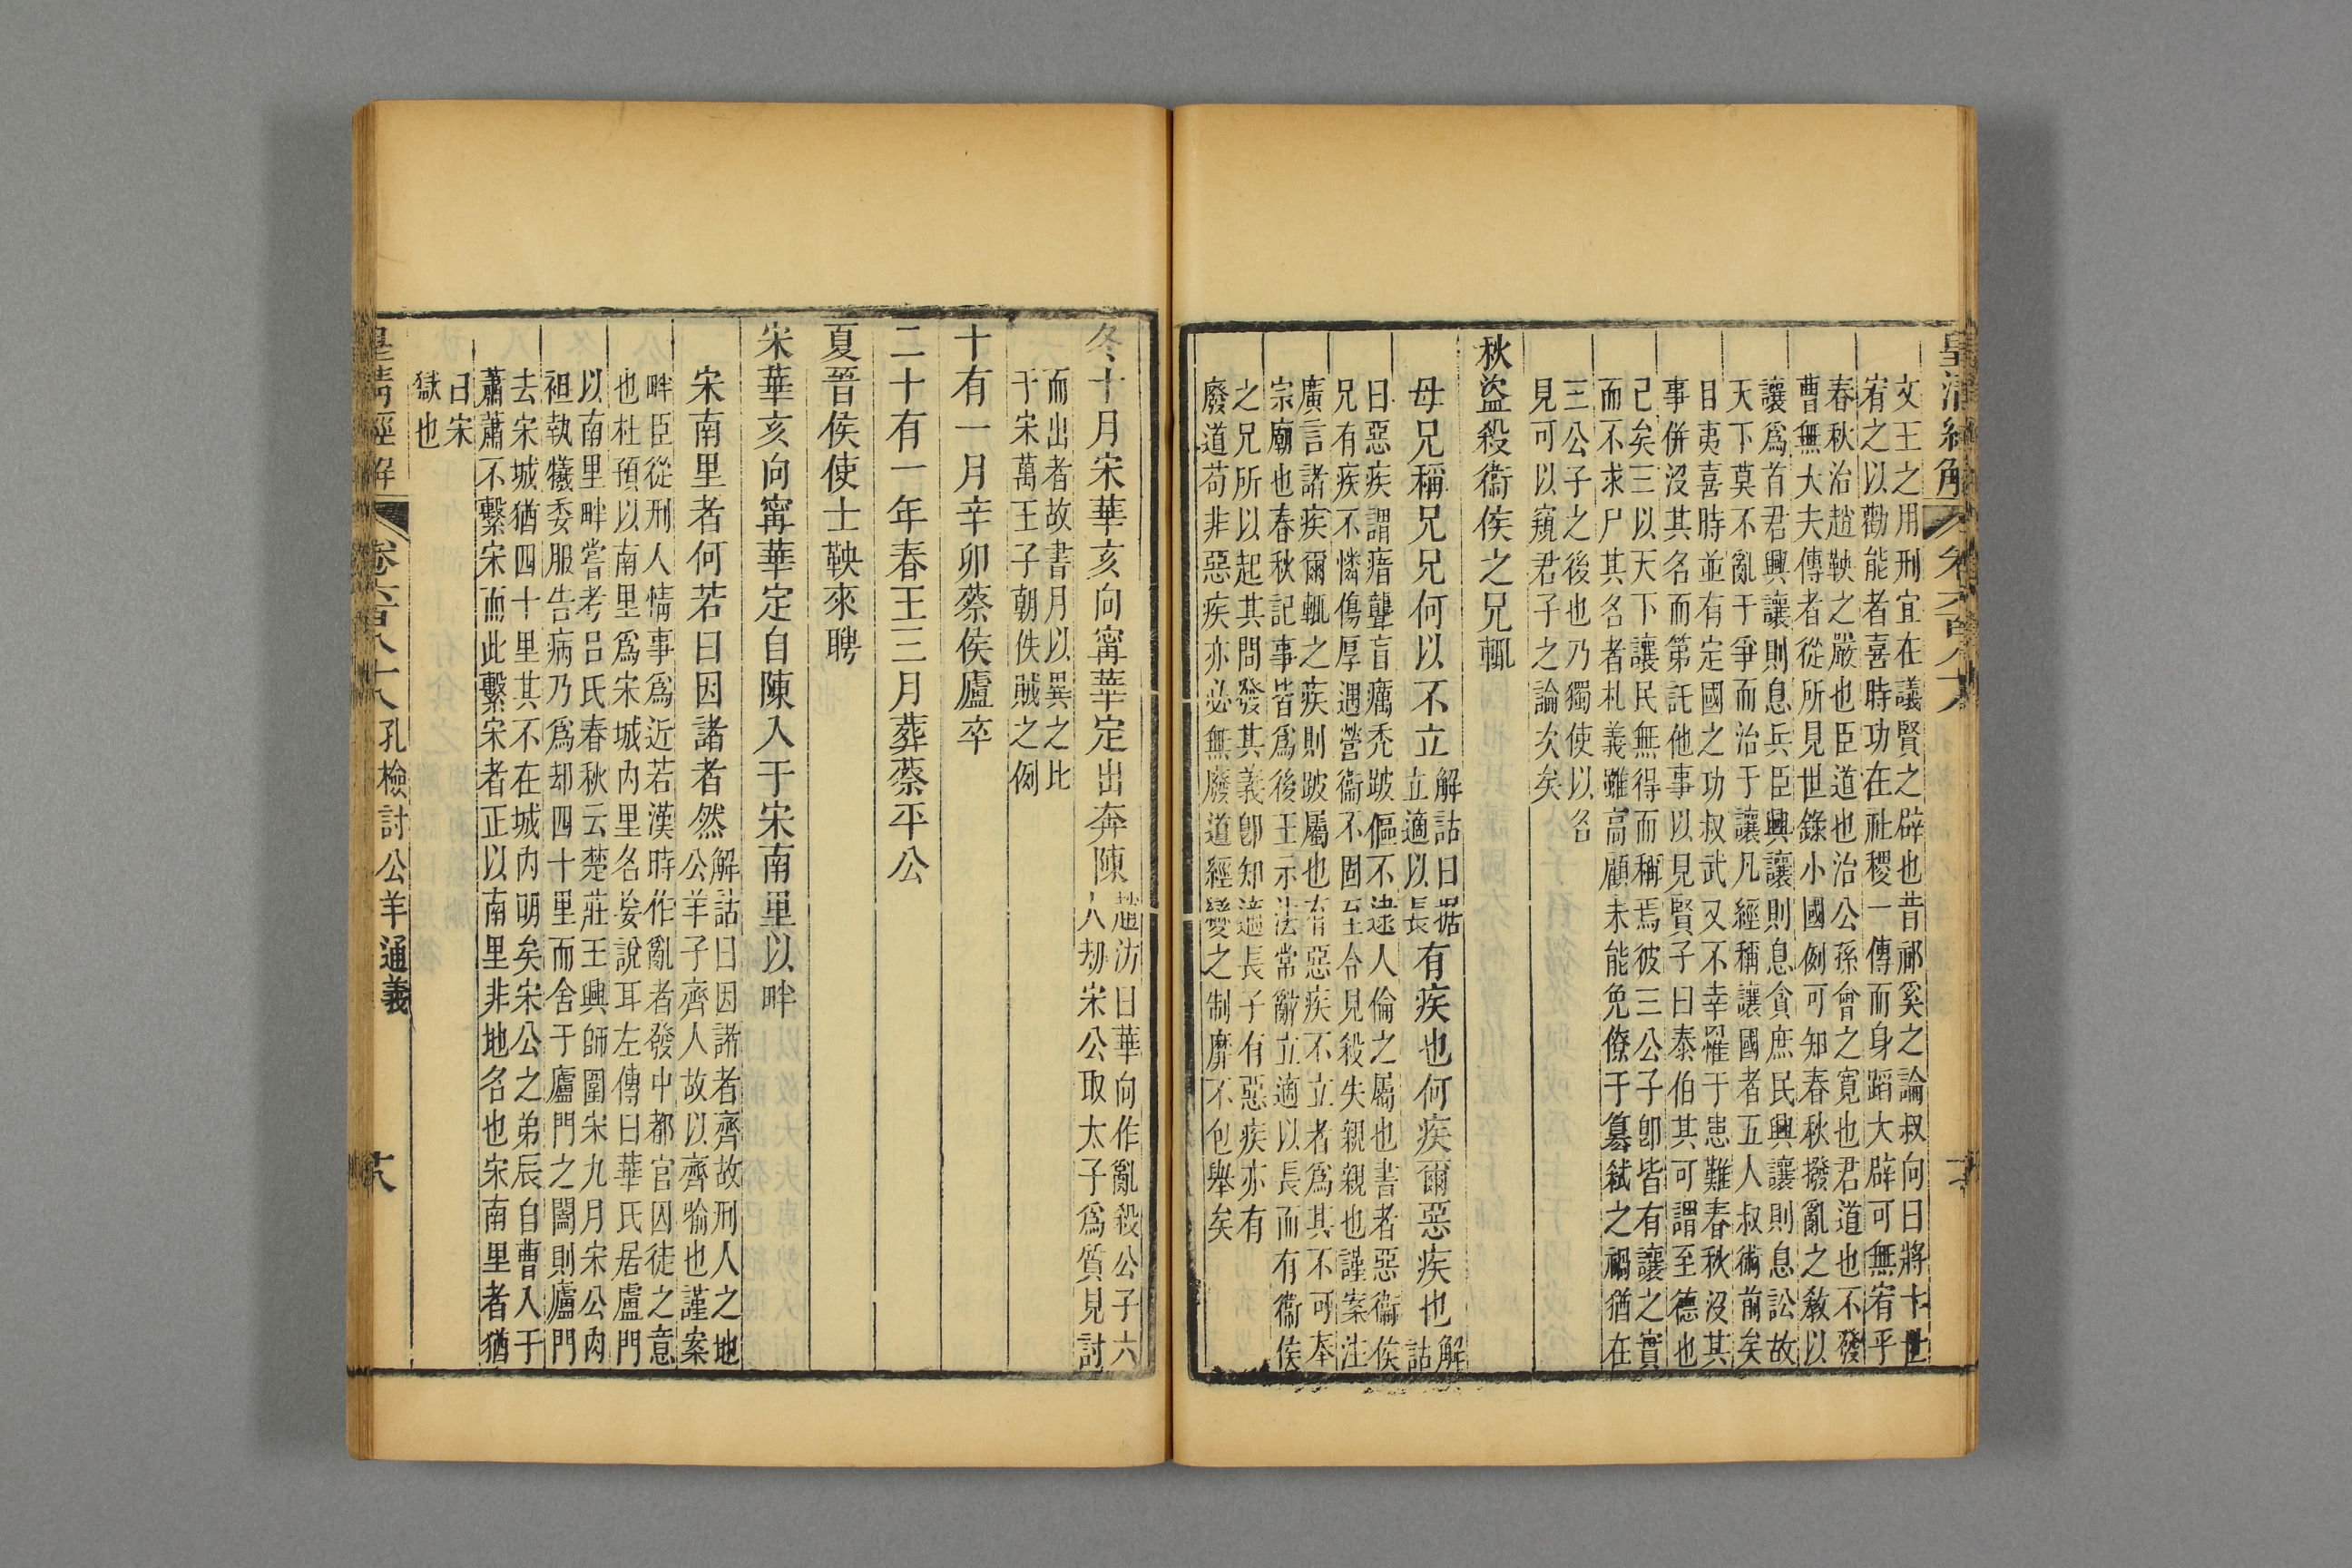 文王之用刑宜在議賢之辟也昔祁奚之論叔向曰將十世
宥之以勸能者喜時功在社稷一傳而身蹈大辟可無宥乎
春秋治趙鞅之嚴也臣道也治公孫會之寛也君道也不發
曹無大夫傳者從所見世錄小國例可知春秋撥亂之敎以
讓爲首君興讓則息兵臣興讓則息貪庶民興讓則息訟故
天下莫不亂于爭而治于讓凡經稱讓國者五人叔術前矣
曰夷喜時並有定國之功叔武又不幸罹于恚難春秋沒其
事併沒其名而第託他事以見賢子曰泰伯其可謂至德也
已矣三以天下讓民無得而稱焉彼三公子卽皆有讓之實
而不求尸其名者札義雖高顧未能免僚于簒弑之禍猶在
三公子之後也乃獨使以名
見可以窺君子之論次矣
秋盜殺衞侯之兄輒
母兄稱兄兄何以不立
解詁曰据
立適以長
有疾也何疾爾惡疾也
解
詁
曰惡疾謂瘖聾盲癘禿跛傴不逮人倫之屬也書者惡衞侯
兄有疾不憐傷厚遇營衞不固至令見殺失親親也謹案注
廣言諸疾爾輒之疾則跛屬也有惡疾不立者爲其不可奉
宗廟也春秋記事皆爲後王示法常辭立適以長而有衞侯
之兄所以起其問發其義卽知適長子有惡疾亦有
廢道苟非惡疾亦必無廢道經變之制靡不包舉矣
冬十月宋華亥向甯華定出奔陳
趙汸曰華向作亂殺公子六
人劫宋公取太子爲質見討
而出者故書月以異之比
于宋萬王子朝佚賊之例
十有一月辛卯蔡侯廬卒
二十有一年春王三月葬蔡平公
夏晉侯使士鞅來聘
宋華亥向甯華定自陳入于宋南里以畔
宋南里者何若曰因諸者然
解詁曰因諸者齊故刑人之地
公羊子齊人故以齊喻也謹案
畔臣從刑人情事爲近若漢時作亂者發中都官囚徒之意
也杜預以南里爲宋城內里名妄說耳左傳曰華氏居盧門
以南里畔嘗考呂氏春秋云楚莊王興師圍宋九月宋公肉
袒執犧委服告病乃爲却四十里而舍于盧門之闔則盧門
去宋城猶四十里其不在城內明矣宋公之弟辰自曹入于
蕭蕭不繫宋而此繫宋者正以南里非地名也宋南里者猶
曰宋
獄也
皇淸經解
卷六百八十八
孔檢討公羊通義